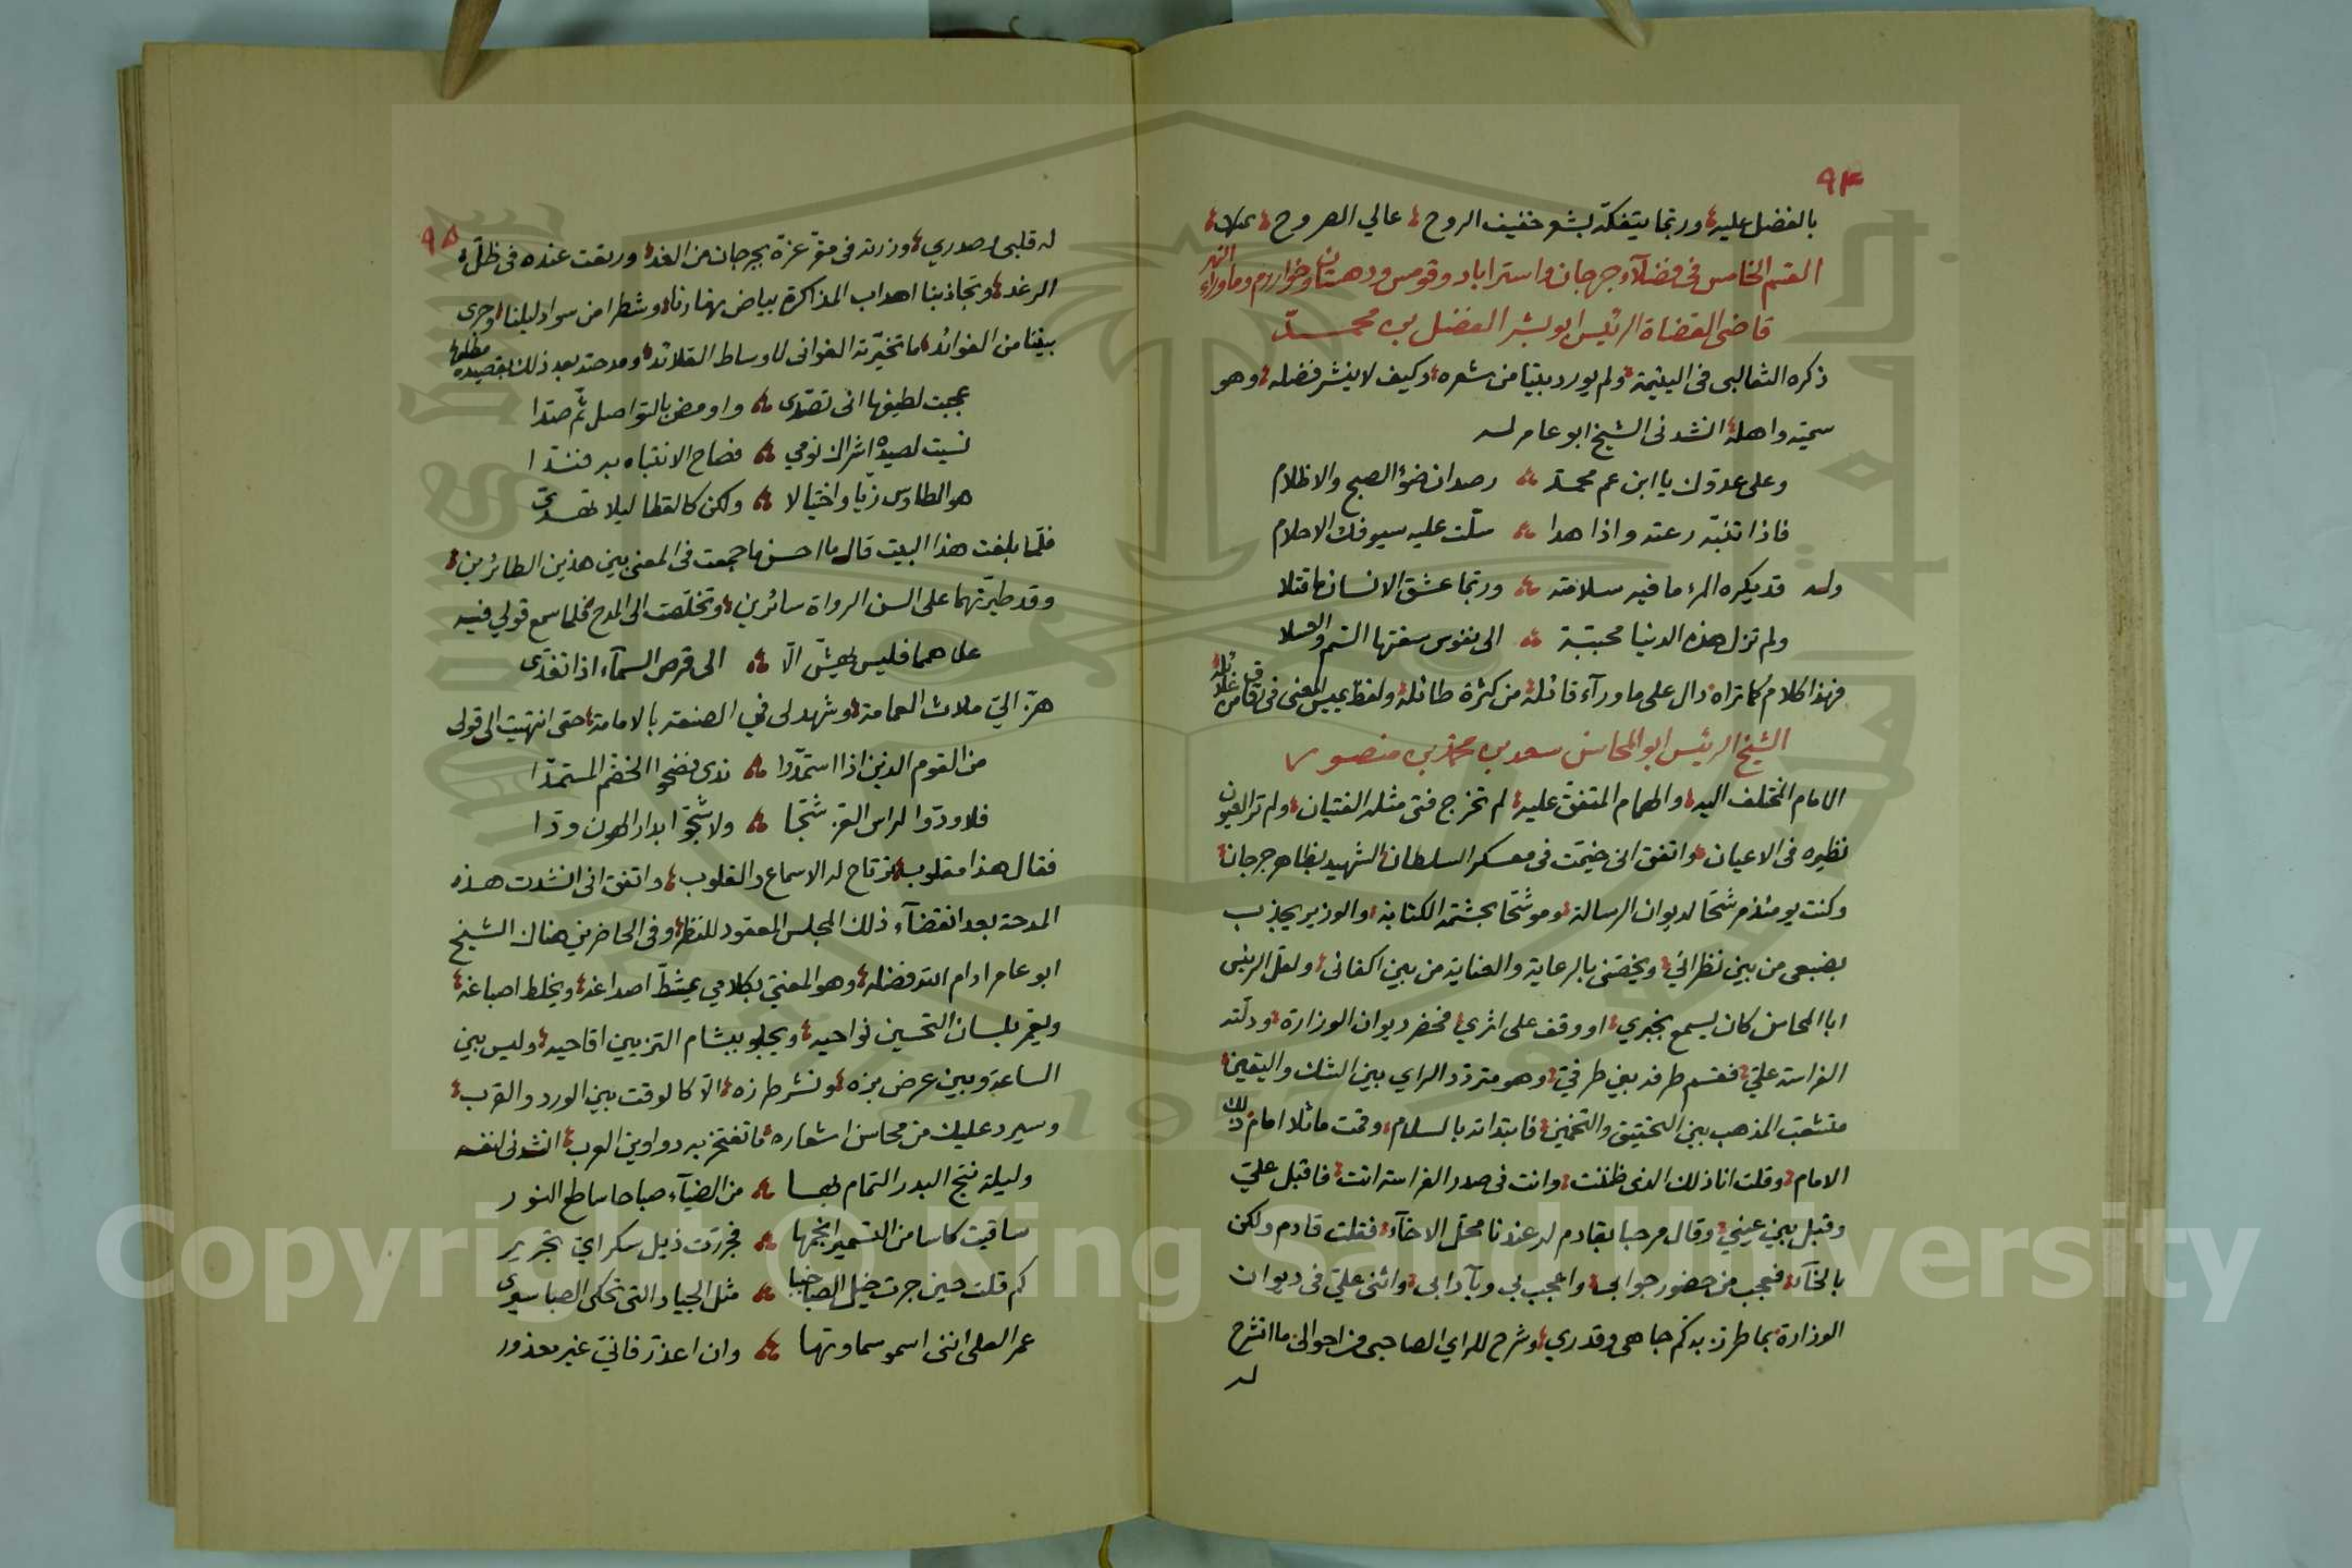 ٩٤
بالفضل عليه؛ وربما يتفكه بشعر خفيف الروح؛ عالي الصروح؛
القسم الخامس في فضلآء جرجان واستراباد وقومس ودهستان وخوارزم وماوراء النهر
قاضى القضاة الرئيس ابو بشر الفضل بن محمد
ذكره الثعالبى فى اليتيمة؛ ولم يورد بيتا من شعره؛ وكيف لا ينشر فضله؛ وهو
سميّه واهله؛ انشدنى الشيخ ابو عامر له
وعلى عدوّك يا ابن عم محمد ؞ رصدان ضوُ الصبح والاظلام
فاذا تنبّه رعته واذا هدا ؞ سلّت عليه سيوفك الاحلام
وله قد يكره المرء ما فيه سلامته ؞ وربّما عشق الانسان ما قتلا
ولم تزل هذه الدنيا محبّبة ؞ الى نفوس سقتها السم والعسلا
فهذا كلام كما تراه؛ دال على ما ورآء قائله؛ من كثرة طائله؛ ولفظ يميس المعنى فى رقاق غلائله؛
الشيخ الرئيس ابو المحاسن سعد بن محمد بن منصور
الامام المختلف اليه؛ والهمام المتفق عليه؛ لم تخرج فتى مثله الفتيان؛ ولم تر العيون
نظيره فى الاعيان؛ واتفق انى خيمّت فى معسكر السلطان الشهيد بظاهر جرجان؛
وكنت يومئذ مرشحا لديوان الرسالة؛ وموشّحا بحشمة الكتابة؛ والوزير يجذب
بضبعى من بين نظرائي؛ ويخصّنى بالرعاية والعناية من بين اكفائى؛ ولعلّ الرئيس
ابا المحاسن كان يسمع بخبري؛ او وقف على اثري؛ فحضر ديوان الوزارة؛ ودلّته
الفراسة عليّ؛ فقسم طرفه بين طرفيّ؛ وهو متردّد الراي بين الشك واليقين؛
متشعّب المذهب بين التحقيق والتخمين؛ فابتداته بالسلام؛ وقمت ماثلا امام ذلك
الامام؛ وقلت انا ذلك الذى ظننت؛ وانت فى صدر الفراسة انت؛ فاقبل عليّ
وقبل بين عينيّ؛ وقال مرحبا بقادم له عندنا محلّ الاخآء؛ فقلت قادم ولكن
بالخآء؛ فعجب من حضور جوابى؛ واعجب بي وبآدابى؛ واثنى عليّ فى ديوان
الوزارة؛ بما طرز به كم جاهى وقدري؛ وشرح للراي الصاحبى من احوالى ما انشرح
له
٩٥
له قلبى وصدري؛ وزرته فى مقرّ عزة بجرجان من الغد؛ ورتعت عنده فى ظلّه
الرغد؛ وتجاذبنا اهداب المذاكرة بياض نهارنا؛ وشطرا من سواد ليلنا؛ وجرى
بيننا من الفوائد؛ ما تخيرّته الغوانى لاوساط القلائد؛ ومدحته بعد ذلك بقصيده مطلعها
عجبت لطيفها انى تصدّى ؞ واومض بالتواصل ثمّ صدّا
نسيت لصيده اشراك نومي ؞ فصاح الانتباه به فندّا
هو الطاوس زيا واختيالا ؞ ولكن كالقطا ليلا تهدّى
فلّما بلغت هذا البيت قال ما احسن ما جمعت فى المعنى بين هذين الطائرين؛
وقد طيّرتهما على السن الرواة سائرين؛ وتخلّصت الى المدح فلما سمع قولي فيه
علا همما فليس يهشّ الّا ؞ الى قرص السمآء اذا تغدّى
هزّ اليّ ملاث العمامة؛ وشهد لى في الصنعة بالامامة؛ حتى انتهيت الى قولى
من القوم الذين اذا استمدّوا ؞ ندى فضحوا الخضم المستمدّا
فلا ودّوا لراس القرن شجّا ؞ ولا شجّوا بدار الهون ودّا
فقال هذا مقلوب؛ ترتاح له الاسماع والقلوب؛ واتفق انى انشدت هذه
المدحة بعد انقضآء ذلك المجلس المعقود للنظر؛ وفى الحاضرين هناك الشيخ
ابو عامر ادام الله فضله؛ وهو المعنيّ بكلامي يمشطّ اصداغه؛ ويخلط اصباغه؛
ويغمر بلسان التحسين نواحيه؛ ويجلو ببشام التزيين اقاحيه؛ وليس بين
الساعة وبين عرض بزه؛ ونشر طرزه؛ الّا كالوقت بين الورد والقرب؛
وسيرد عليك من محاسن اشعاره؛ ما تفتخر به دواوين العرب؛ انشدنى لنفسه
وليلة نتج البدر التمام بها ؞ من الضيآء صباحا ساطع النور
ساقيت كاسا من التسمير انجمها ؞ فجررت ذيل سكر ايّ تجرير
كم قلت حين جرت خيل الصبا خببا ؞ مثل الجياد التى تحكى الصبا سيرى
عمر العلى اننى اسمو سماوتها ؞ وان اعذّر فانيّ غير معذور
Copyright © King Saud University
1957